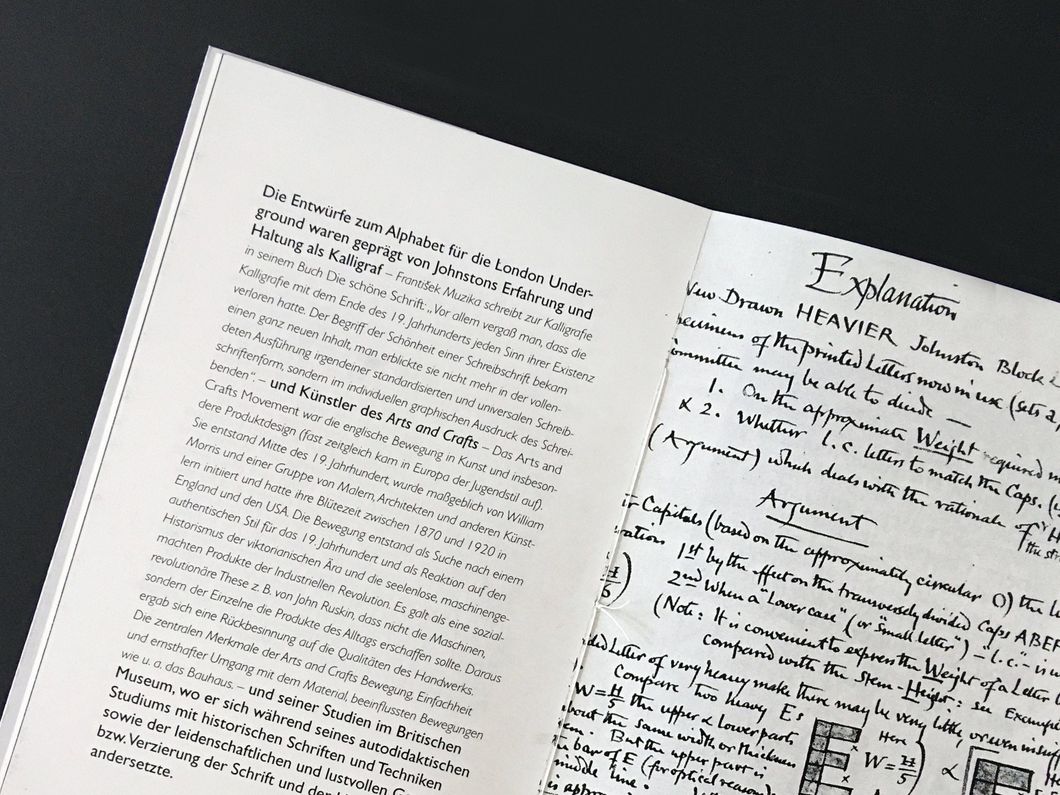 Die Entwürfe zum Alphabet für die London Under-
ground waren geprägt von Johnstons Erfahrung und
Haltung als Kalligraf – František Muzika schreibt zur Kalligrafie
in seinem Buch Die schöne Schrift: „Vor allem vergaß man, dass die
Kalligrafie mit dem Ende des 19. Jahrhunderts jeden Sinn ihrer Existenz
verloren hatte. Der Begriff der Schönheit einer Schreibschrift bekam
einen ganz neuen Inhalt, man erblickte sie nicht mehr in der vollen-
deten Ausführung irgendeiner standardisierten und universalen Schreib-
schriftenform, sondern im individuellen graphischen Ausdruck des Schrei-
benden“. – und Künstler des Arts and Crafts – Das Arts and
Crafts Movement war die englische Bewegung in Kunst und insbeson-
dere Produktdesign (fast zeitgleich kam in Europa der Jugendstil auf).
Sie entstand Mitte des 19. Jahrhundert, wurde maßgeblich von William
Morris und einer Gruppe von Malern, Architekten und anderen Künst-
lern initiiert und hatte ihre Blütezeit zwischen 1870 und 1920 in
England und den USA. Die Bewegung entstand als Suche nach einem
authentischen Stil für das 19. Jahrhundert und als Reaktion auf den
Historismus der viktorianischen Ära und die seelenlose, maschinenge-
machten Produkte der Industriellen Revolution. Es galt als eine sozial-
revolutionäre These z. B. von John Ruskin, dass nicht die Maschinen,
sondern der Einzelne die Produkte des Alltags erschaffen sollte. Daraus
ergab sich eine Rückbesinnung auf die Qualitäten des Handwerks.
Die zentralen Merkmale der Arts and Crafts Bewegung, Einfachheit
und ernsthafter Umgang mit dem Material, beeinflussten Bewegungen
wie u. a. das Bauhaus. – und seiner Studien im Britischen
Museum, wo er sich während seines autodidaktischen
Studiums mit historischen Schriften und Techniken
sowie der leidenschaftlichen und lustvollen
bzw. Verzierung der Schrift und der
andersetzte.
Explanation
New Drawn HEAVIER Johnston Block
specimens of the printed Letters now in use (sets
Committee may be able to decide —
1. On the approximate Weight required
& 2. Whether l.c. letters to match the Caps.
(Argument) which deals with the rationale of
Argument
Capitals (based on the approximately circular O) the
1st by the effect on the transversely divided Caps ABEF
2nd When a "Lower case" (or "small letter") – l.c. – is
(Note: It is convenient to express the Weight of a Letter
compared with the Stem-Height: see
Letter of very heavy make there may be very little, or even
Compare two heavy Es
W = H/5 the upper & lower parts
about the same width or thickness
But the upper part is
bar of E (for optical reasons)
middle line.
is
Here
W = H/5
&